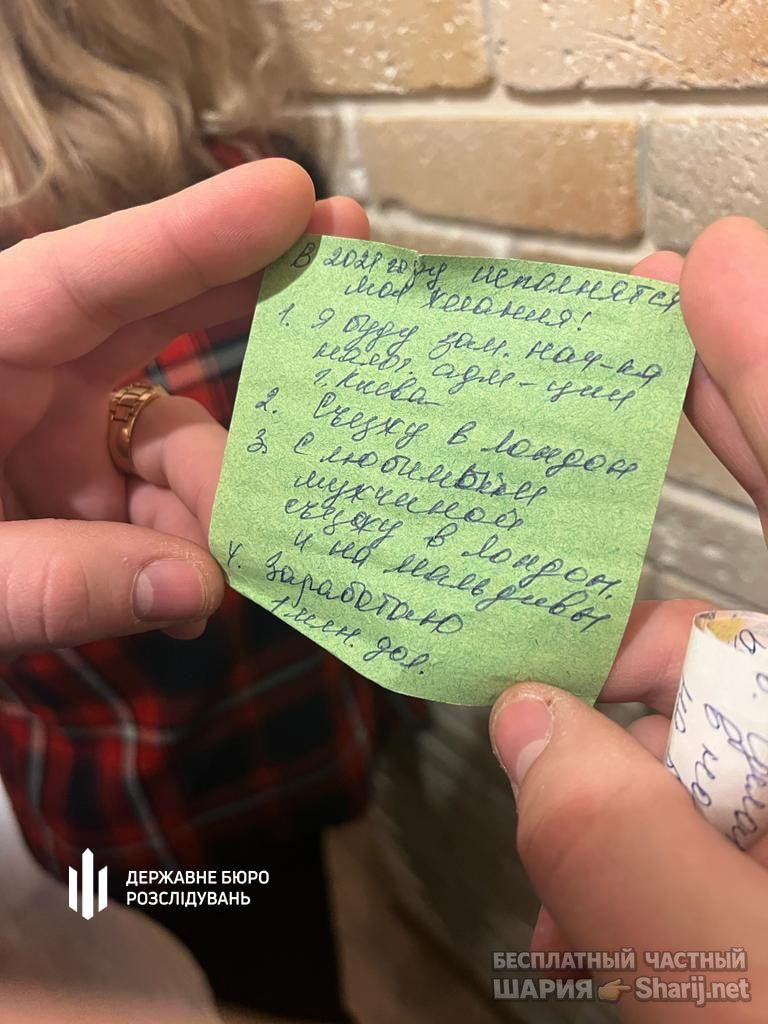 В 2021 году исполнятся
мои желания!
1. Я буду зам. нач-ка
налог. адм-ции
г. Киева
2. Съезжу в Лондон
3. С любимым
мужчиной
съезжу в Лондон.
и на Мальдивы
4. Заработаю
1 мин. дол.
ДЕРЖАВНЕ БЮРО
РОЗСЛІДУВАНЬ
БЕСПЛАТНЫЙ ЧАСТНЫЙ
ШАРИЯ 👉 Sharij.net